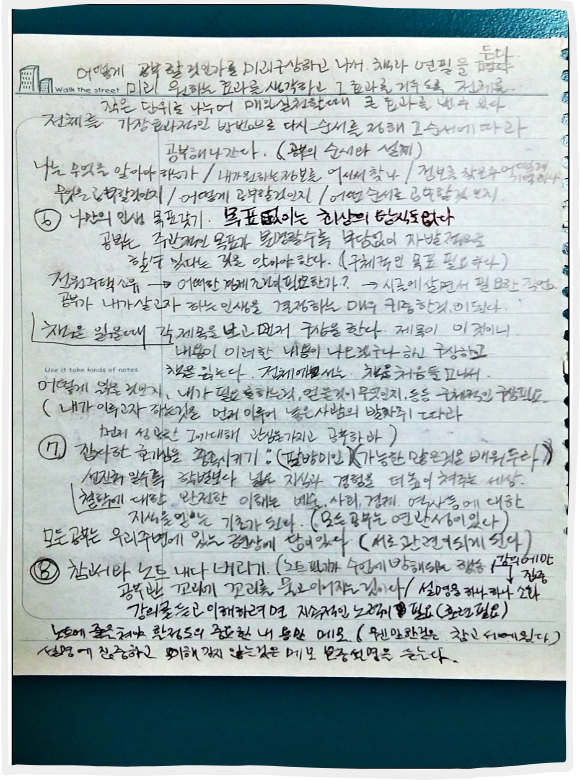 어떻게 공부할것인가를 미리구상하고 나서 책과 연필을 든다
Walk the street 미리 원하는 효과를 생각하고 그 효과를 거두도록 전체를
작은 단위로 나누어 매일실천할때 큰 효과를 낼수 있다
전체를 가장효과적인 방법으로 다시 순서를 정해 그순서에 따라
공부해나간다. (공부의 순서와 설계)
나는 무엇을 알아야 하는가 / 내가원하는정보를 어디서 찾나 / 정보를
무엇을 공부할것인지 / 어떻게 공부할것인지 / 어떤 순서로 공부할것 인지
⑥ 나만의 인생 목표갖기. 목표없이는 최상의 탐식도없다
공부는 주관적인 목표가 분명할수록 부담없이 자발적으로
할수 있다는 것을 알아야 한다. (구체적인 목표 필요하다)
전원주택소유 → 어떠한 경제조건이 필요한가? → 시골에 살면서 필요한 직업
공부가 내가살고자 하는인생을 결정하는 매우 귀중한것이된다.
책을 읽을때 각제목을 보고 먼저 구상을 한다. 제목이 이것이니
내용이 이러한 내용이 나오겠구나 하고 구상하고
Use it take kinds of notes 책을 읽는다. 전체에서는 책을처음
어떻게 읽을 것인지, 내가 필요로하는것, 얻을것이 무엇인지 등은 구체적인 구상필요
(내가 이루고자 하는것을 먼저 이루어 놓은사람의 발자취 따라
먼저 성공한 그에대해 관심을가지고 공부하라)
⑦ 잡다한 호기심을 충족시키기 : (팔방미인) (가능한 많은것을 배워두라)
선진화 될수록 학벌보다 넓은 지식과 경험을 더 높이 쳐주는 세상.
철학에 대한 완전한 이해는 예술, 사회, 경제, 역사등에 대한
지식을얻는 기초가 된다. (모든공부는 연관성이있다)
모든공부는 우리주변에 있는 현상에 담겨있다 (서로관련되어지게 된다)
⑧ 참고서와 노트 내다 버리기. (노트 필기가 수업에 방해되는 행동) 강의에만 집중
공부란 꼬리에 꼬리를 물고 이어지는것이다 / 설명을 하나하나 소화
강의를듣고 이해하려면 지속적인 노력이 필요 (훈련필요)
노트에 좋은 정도의 중요한 내용만 메모 (웬만한것은 참고서에있다)
설명에 집중하고 이해 가지 않는것은 메모 설명을 듣는다.